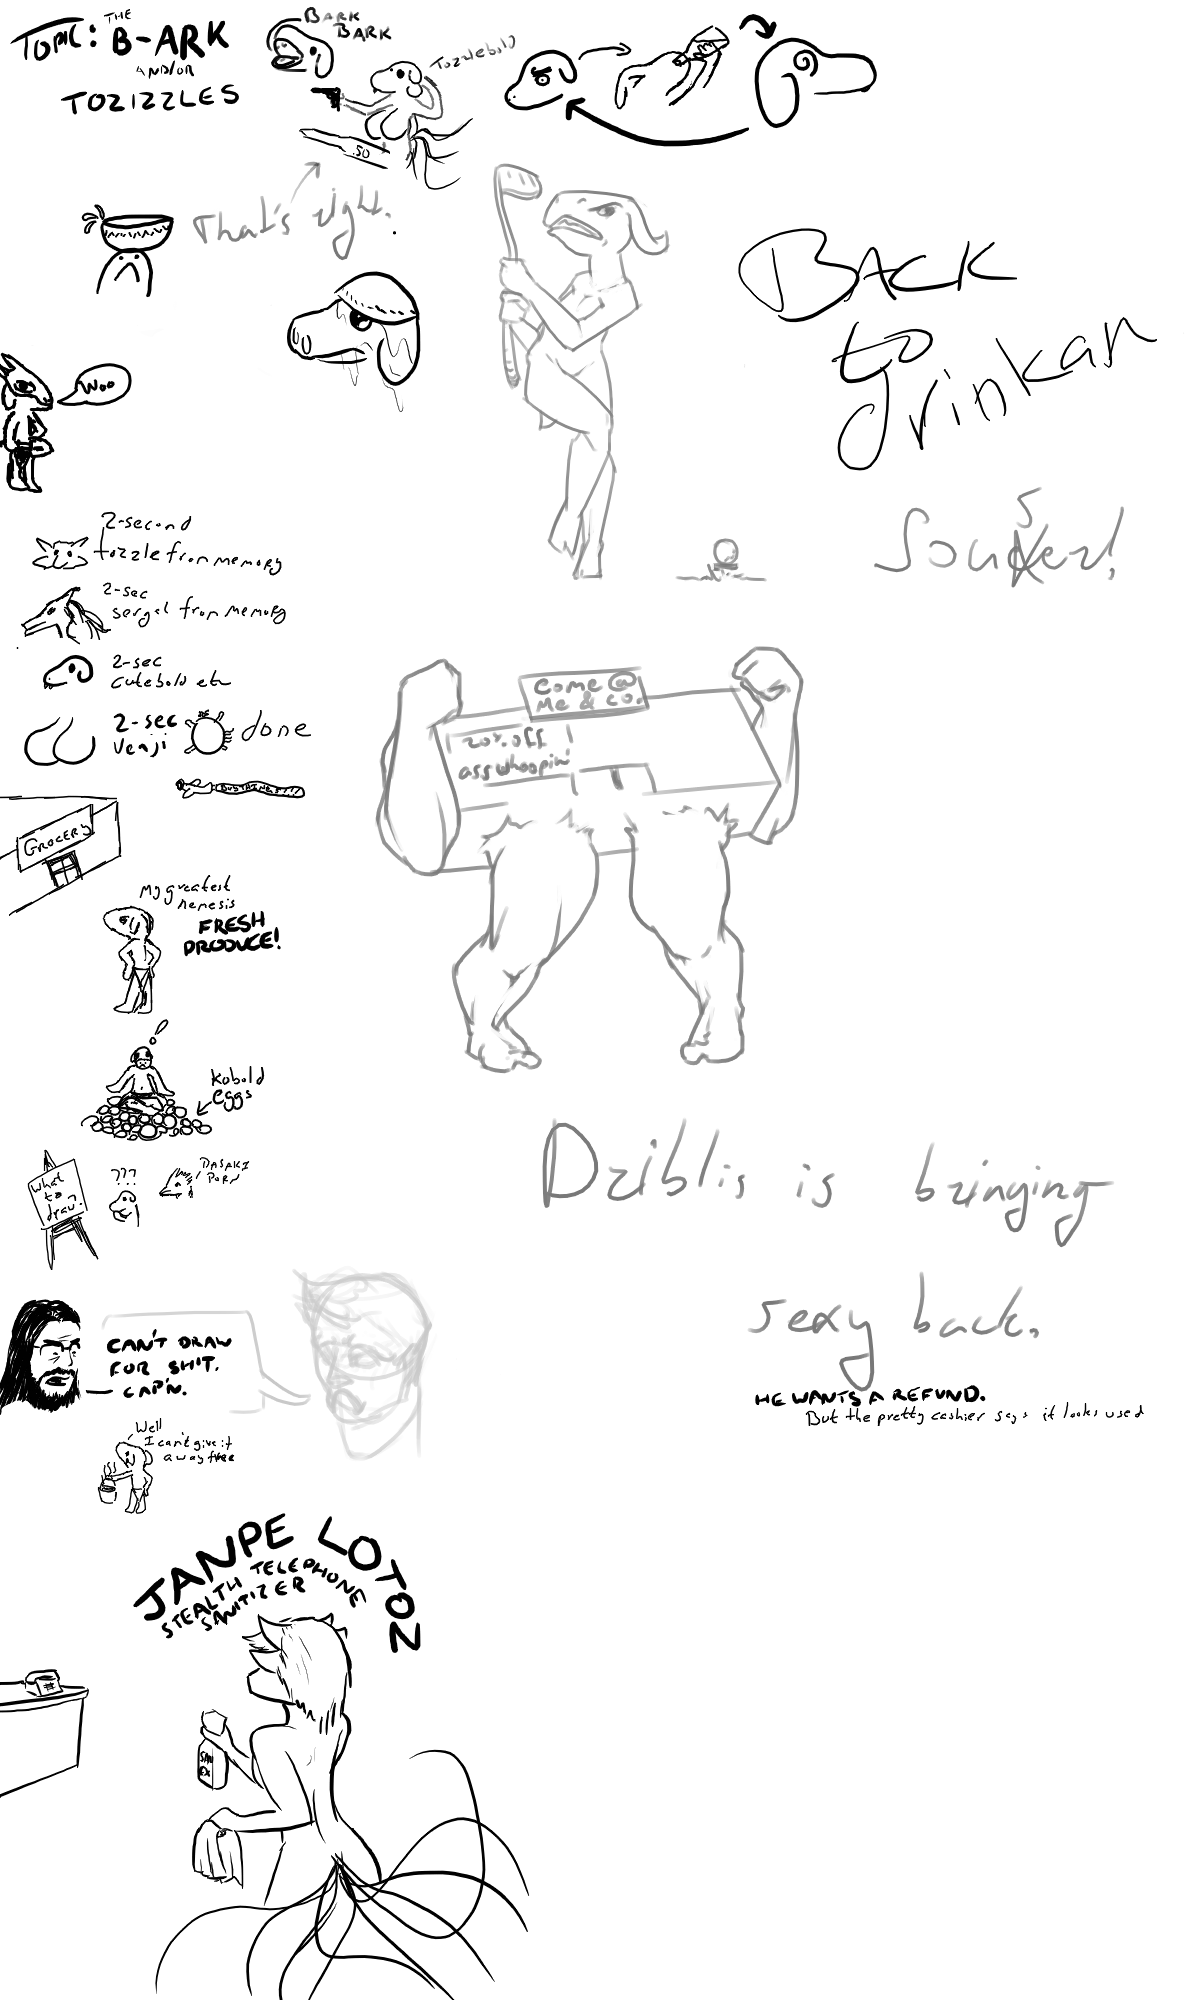 TOPIC: THE
B-ARK
AND/OR
TOZIZZLES
BARK
BARK
Tozzlebold
.50
That's right.
Back
to
drinkan
Sou5er!
Woo
2-second
tozzle from memory
2-sec
sergal from memory
2-sec
cutebold etc
2-sec
Venji
done
Come @
Me & co.
20% off
ass whoopin'
GROCERY
My greatest
nemesis
FRESH
PRODUCE!
kobold
eggs
what
to
draw?
???
DASAKI
PORN
Dziblis is bringing
sexy back.
HE WANTS A REFUND.
But the pretty cashier says it looks used
CAN'T DRAW
FOR SHIT.
CAP'N.
Well
I can't give it
away free
JANPE LOTOZ
STEALTH TELEPHONE
SANITIZER
SAN
EX